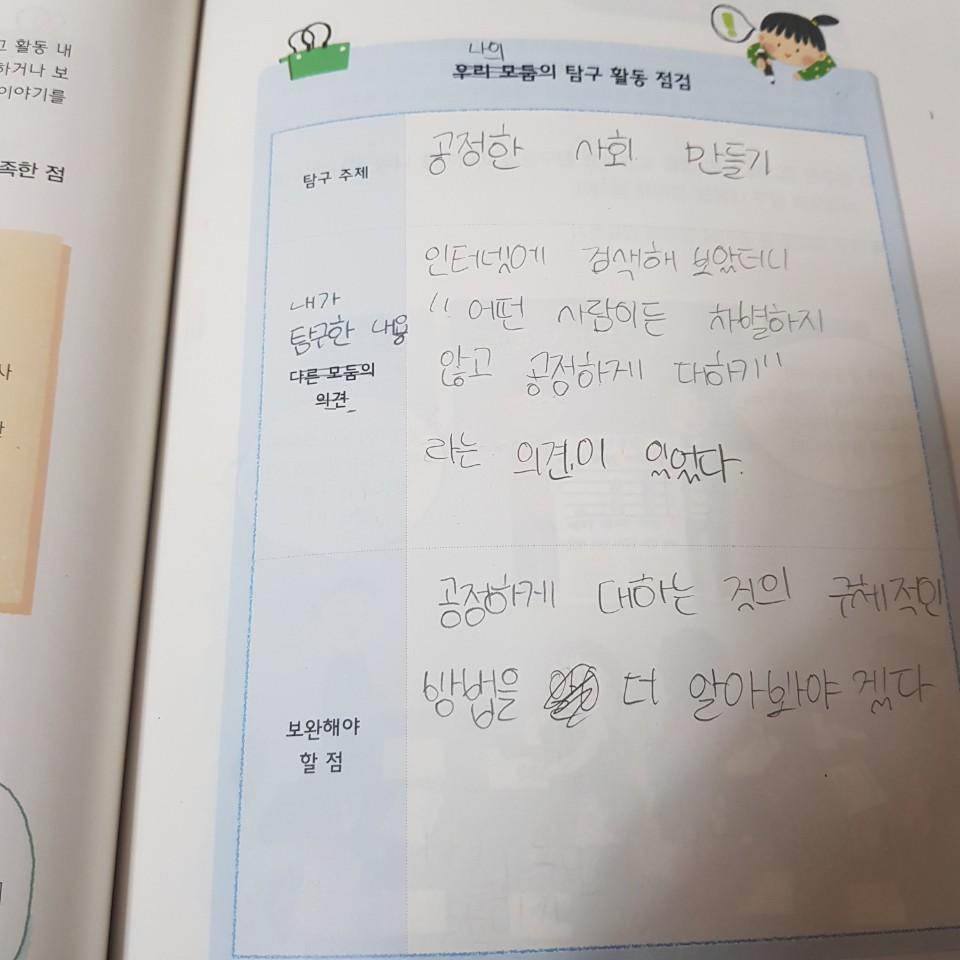 고 활동 내
하거나 보
이야기를
족한 점
나의
우리 모둠의 탐구 활동 점검
탐구 주제
공정한 사회 만들기
내가
탐구한 내용
다른 모둠의
의견
인터넷에 검색해 보았더니
"어떤 사람이든 차별하지
않고 공정하게 대하기"
라는 의견이 있었다.
보완해야
할 점
공정하게 대하는 것의 구체적인
방법을 더 알아봐야 겠다